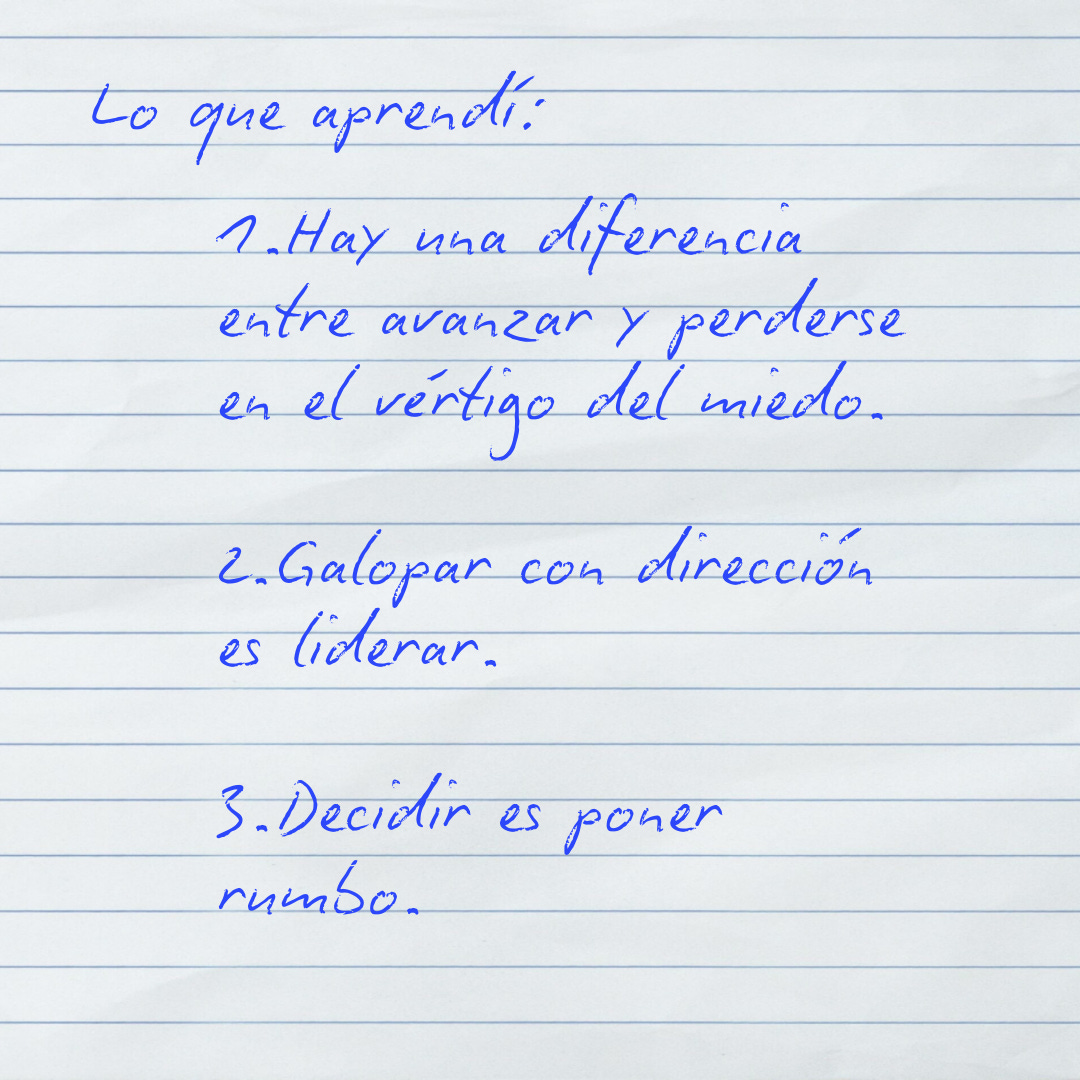 Lo que aprendí:
1.Hay una diferencia
entre avanzar y perderse
en el vértigo del miedo.
2.Galopar con dirección
es liderar.
3.Decidir es poner
rumbo.